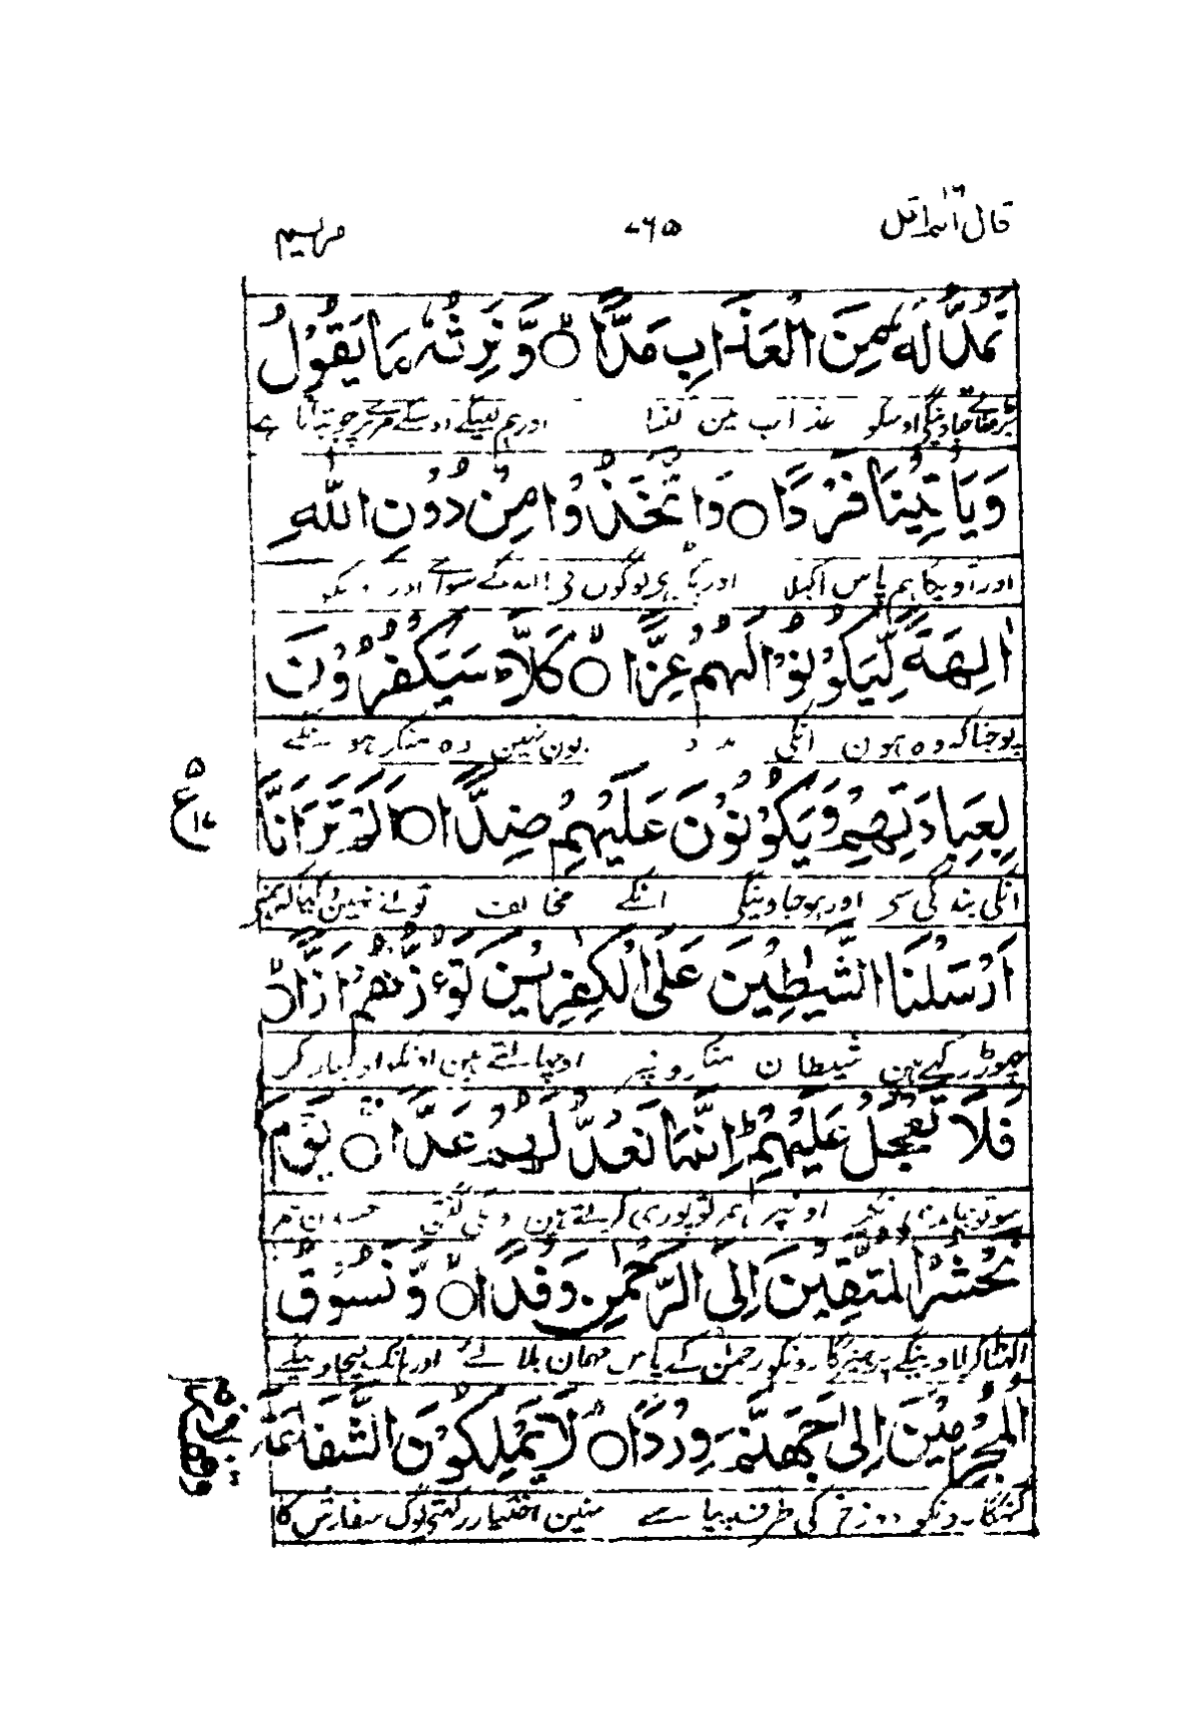 قال الم اقل ١٦
٧٦٥
مريم
نَمُدُّ لَهٗ مِنَ الْعَذَابِ مَدًّا ۙ وَّنَرِثُهٗ مَا يَقُوْلُ
بڑھاتے جاوینگے اوسکو عذاب مین لنبا اور ہم لیلینگے اوسکے مرے پر جو بتاتا ہے
وَيَاْتِيْنَا فَرْدًا ۝ وَاتَّخَذُوْا مِنْ دُوْنِ اللّٰهِ
اور آویگا ہم پاس اکیلا اور پکڑا ہے لوگوں نے اللہ کے سواے اورونکو
اٰلِهَةً لِّيَكُوْنُوْا لَهُمْ عِزًّا ۙ كَلَّا ؕ سَيَكْفُرُوْنَ
پوجنا کہ وہ ہون انکی مدد یون نہین وہ منکر ہونگے
بِعِبَادَتِهِمْ وَيَكُوْنُوْنَ عَلَيْهِمْ ضِدًّا ۝ اَلَمْ تَرَ اَنَّا
انکی بندگی سے اور ہو جاوینگے انکے مخالف تونے نہین دیکھا کہ ہمنے
٥ ع ١٧
اَرْسَلْنَا الشَّيٰطِيْنَ عَلَى الْكٰفِرِيْنَ تَؤُزُّهُمْ اَزًّا ۙ
چھوڑ رکھے ہین شیطان منکرونپر اوچھالتے ہین اونکو اوبھار کر
فَلَا تَعْجَلْ عَلَيْهِمْ ؕ اِنَّمَا نَعُدُّ لَهُمْ عَدًّا ۚ يَوْمَ
سو تو جلدی نکر اونپر ہم تو پوری کرتے ہین انکی گنتی جسدن ہم
نَحْشُرُ الْمُتَّقِيْنَ اِلَى الرَّحْمٰنِ وَفْدًا ۙ وَّنَسُوْقُ
اکٹھا کر لاوینگے پرہیزگارونکو رحمٰن کے پاس مہمان بلائے اور ہانک لیجاوینگے
الْمُجْرِمِيْنَ اِلٰى جَهَنَّمَ وِرْدًا ۘ لَا يَمْلِكُوْنَ الشَّفَاعَةَ
گنہگارونکو دوزخ کی طرف پیاسے نہین اختیار رکھتے لوگ سفارش کا